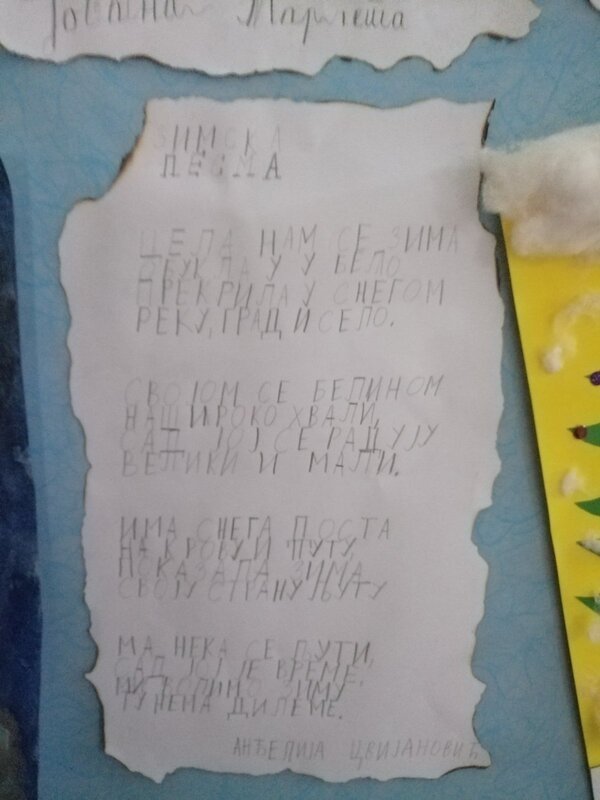 Јована Марјеша
ЗИМСКА
ПЕСМА
ЦЕЛА НАМ СЕ ЗИМА
ОБУКЛА У У БЕЛО
ПРЕКРИЛА У СНЕГОМ
РЕКУ, ГРАД И СЕЛО.
СВОЈОМ СЕ БЕЛИНОМ
НАШИРОКО ХВАЛИ,
САД ЈОЈ СЕ РАДУЈУ
ВЕЛИКИ И МАЛИ.
ИМА СНЕГА ДОСТА
НА КРОВУ И ПУТУ,
ПОКАЗАЛА ЗИМА
СВОЈУ СТРАНУ ЉУТУ
МА НЕКА СЕ ЉУТИ,
САД ЈОЈ ЈЕ ВРЕМЕ.
МИ ВОЛИМО ЗИМУ
ТУ НЕМА ДИЛЕМЕ.
АНЂЕЛИЈА ЦВИЈАНОВИЋ